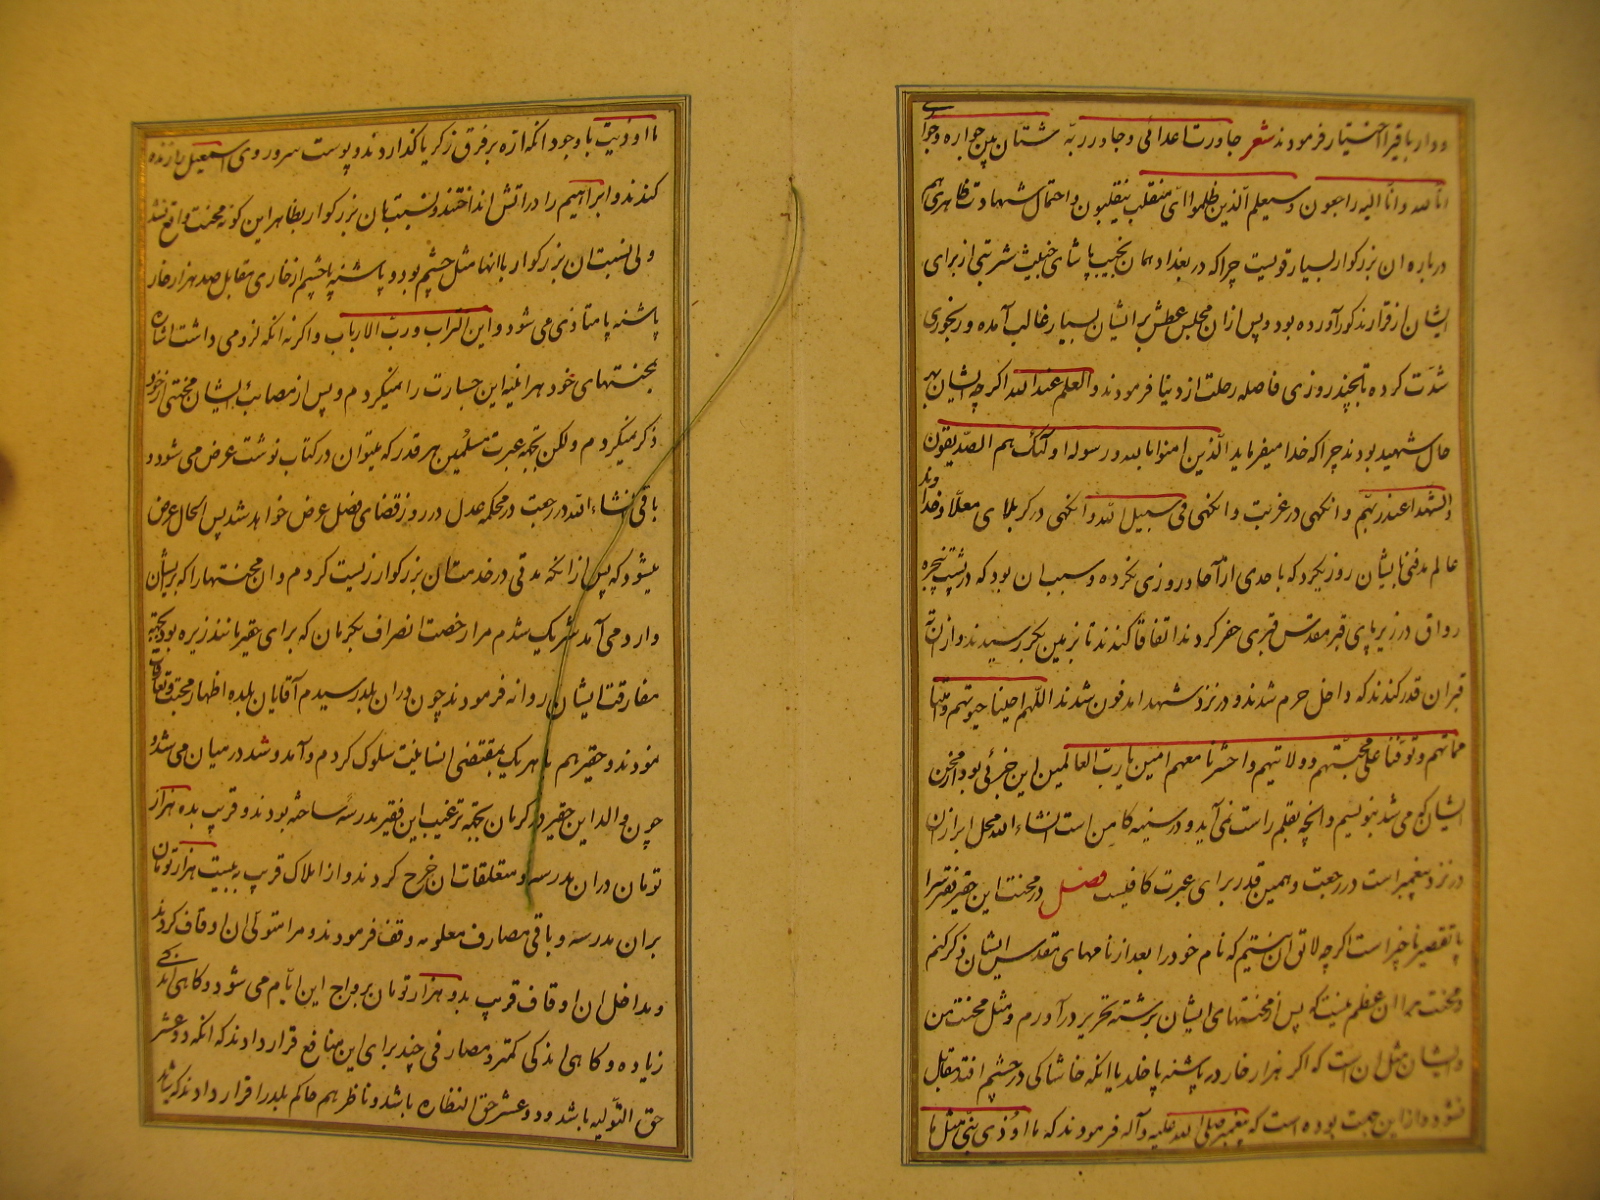 ودار باقی را اختیار فرمودند شعر جاورت اعدائی وجاور ربه شتان بین جواره وجواری
انا لله وانا الیه راجعون وسیعلم الذین ظلموا ای منقلب ینقلبون واحتمال شهادت ظاهری هم
درباره ان بزرکوار بسیار قویست چرا که در بغداد همان نجیب پاشای خبیث شربتی از برای
ایشان از قرار مذکور آورده بود وپس از ان مجلس عطش بر ایشان بسیار غالب آمده ورنجوری
شدت کرده تا بچند روزی فاصله رحلت از دنیا فرمودند والعلم عند الله اکرچه ایشان بهر
حال شهید بودند چرا که خدا میفرماید الذین امنوا بالله ورسوله اولئک هم الصدیقون
والشهدا عند ربهم وانکهی در غربت وانکهی فی سبیل الله وانکهی در کربلای معلا وخداوند
عالم مدفنی بایشان روزی کرد که باحدی از آحاد روزی نکرده وسبب ان بود که در پشت پنجره
رواق در زیر پای قبر مقدس قبری حفر کردند اتفاقا کندند تا بزمین بکر رسیدند واز ته
قبر ان قدر کندند که داخل حرم شدند ودر نزد شهدا مدفون شدند اللهم احینا حیوتهم وامتنا
مماتهم وتوفنا علی محبتهم وولایتهم واحشرنا معهم امین یا رب العالمین این جزئی بود از محن
ایشان که می شد بنویسیم وانچه بقلم راست نمی آید ودر سینه کامن است انشاء الله محل ابراز ان
در نزد پیغمبر است در رجعت وهمین قدر برای عبرت کافیست فصل در محنت این حقیر فقیر سرا
پا تقصیر ناچیز است اکرچه لائق ان نیستم که نام خود را بعد از نامهای مقدس ایشان ذکر کنم
ومحنت مرا ان عظم نیست که پس از محنتهای ایشان برشته تحریر در آورم ومثل محنت من
وایشان مثل ان است که اکر هزار خار در پاشنه پا خلد یا انکه خاشاکی در چشم افتد مقابل
نشود واز این جهت بوده است که پیغمبر صلی الله علیه وآله فرمودند که ما اوذی نبی مثل ما
ما اوذیت با وجود انکه اره بر فرق زکریا کذاردند وپوست سر وروی اسمعیل را زنده
کندند وابراهیم را در اتش انداختند ونسبت بان بزرکوار بظاهر این کونه محنت واقع نشد
ولی نسبت ان بزرکوار با انها مثل چشم بود وپاشنه پا چشم از خاری مقابل صد هزار خار
پاشنه پا متاذی می شود واین التراب ورب الارباب واکر نه انکه لزوم می داشت اشاره
بمحنتهای خود هراینه این جسارت را نمیکردم وپس از مصائب ایشان محنتی از خود
ذکر نمیکردم ولکن بجهة عبرت مسلمین هر قدر که میتوان در کتاب نوشت عرض می شود و
باقی انشاء الله در رجعت در محکمه عدل در روز قضای فصل عرض خواهد شد پس الحال عرض
میشود که پس از انکه مدتی در خدمت ان بزرکوار زیست کردم وان محنتها را که بر ایشان
وارد می آمد شریک شدم مرا رخصت انصراف بکرمان که برای حقیر مانند زیره بود بجهة
مفارقت ایشان روانه فرمودند چون در ان بلد رسیدم آقایان بلده اظهار محبت وتعارفات
نمودند وحقیر هم با هر یک بمقتضی انسانیت سلوک کردم وآمد وشد در میان می شد و
چون والد این حقیر در کرمان بجهة ترغیب این فقیر مدرسهٔ ساخته بودند وقریب بده هزار
تومان در ان مدرسه ومتعلقات ان خرج کردند واز املاک قریب به بیست هزار تومان
بر ان مدرسه وباقی مصارف معلومه وقف فرمودند ومرا متولی ان اوقاف کردند
ومداخل ان اوقاف قریب بدو هزار تومان برواج این ایام می شود وکاهی اندکی
زیاده وکاهی اندکی کمتر ومصارفی چند برای این منافع قرار دادند که انکه دو عشر
حق التولیه باشد ودو عشر حق النظاره باشد وناظر هم حاکم بلد را قرار دادند که شاید